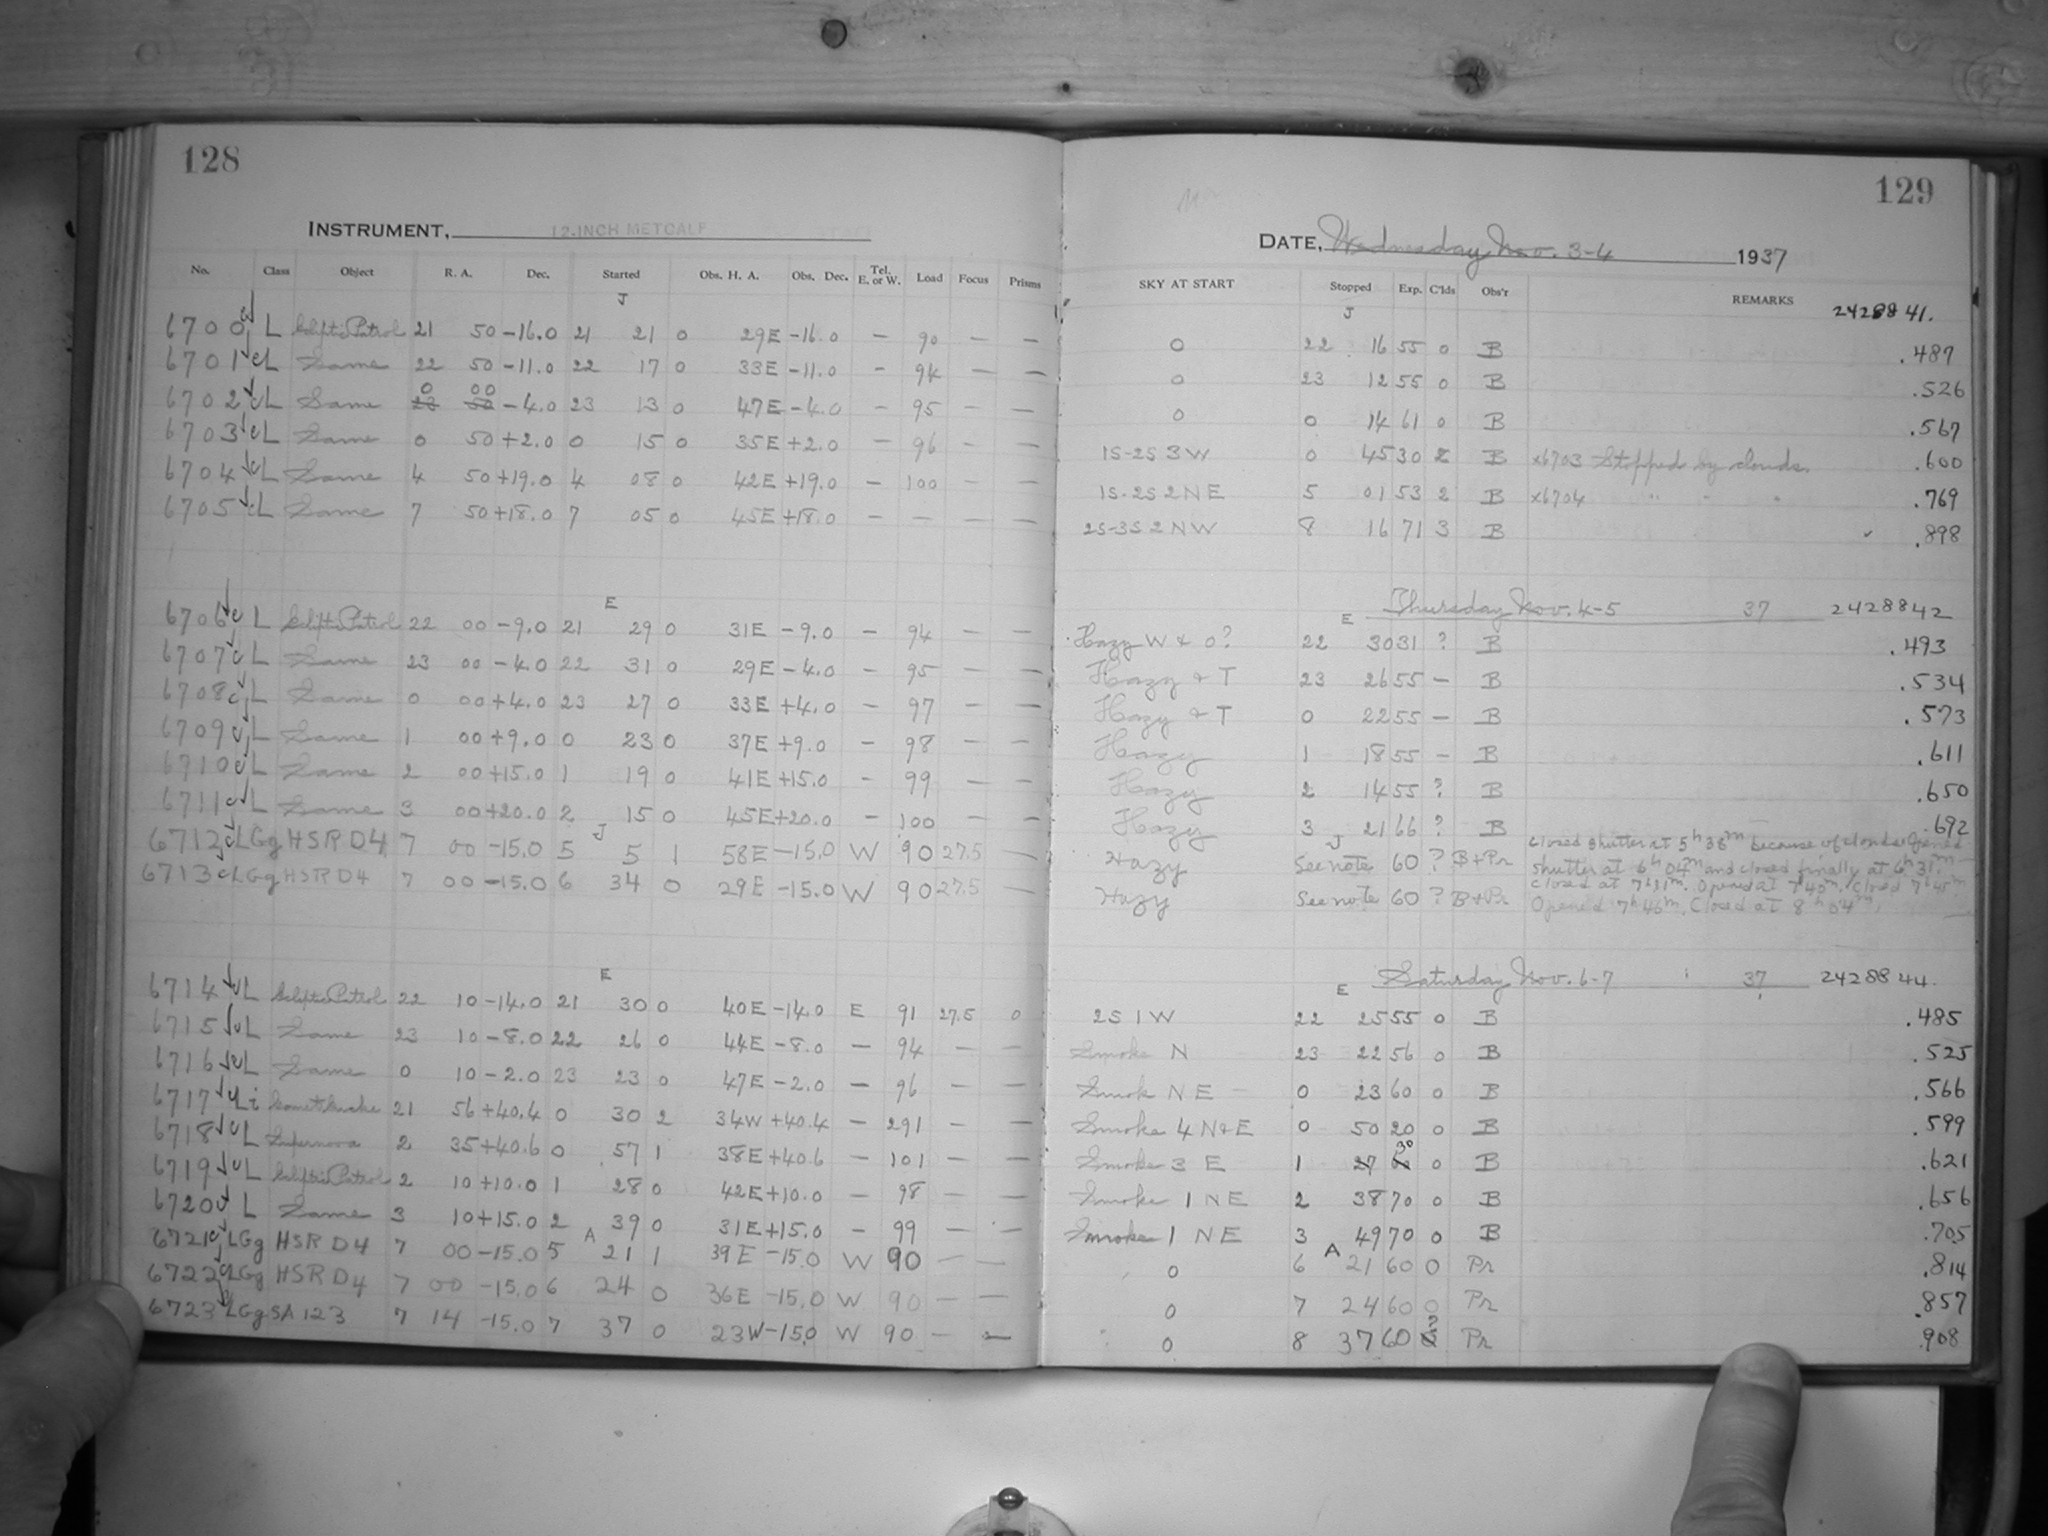 128
INSTRUMENT, 12-INCH METCALF
No. Class Object R. A. Dec. Started Obs. H. A. Obs. Dec. Tel. E. or W. Load Focus Prisms
J
6700 L Ecliptic Patrol 21 50 -16.0 21 21 0 29E -16.0 - 90 - -
6701 L Same 22 50 -11.0 22 17 0 33E -11.0 - 94 - -
0 00
6702 L Same 23 50 -4.0 23 13 0 47E -4.0 - 95 - -
6703 L Same 0 50 +2.0 0 15 0 35E +2.0 - 96 - -
6704 L Same 4 50 +19.0 4 08 0 42E +19.0 - 100 - -
6705 L Same 7 50 +18.0 7 05 0 45E +18.0 - - - -
E
6706 L Ecliptic Patrol 22 00 -9.0 21 29 0 31E -9.0 - 94 - -
6707 L Same 23 00 -4.0 22 31 0 29E -4.0 - 95 - -
6708 L Same 0 00 +4.0 23 27 0 33E +4.0 - 97 - -
6709 L Same 1 00 +9.0 0 23 0 37E +9.0 - 98 - -
6710 L Same 2 00 +15.0 1 19 0 41E +15.0 - 99 - -
6711 L Same 3 00 +20.0 2 15 0 45E +20.0 - 100 - -
J
6712 LGg HSR D4 7 00 -15.0 5 5 1 58E -15.0 W 90 27.5 -
6713 LGg HSR D4 7 00 -15.0 6 34 0 29E -15.0 W 90 27.5 -
E
6714 L Ecliptic Patrol 22 10 -14.0 21 30 0 40E -14.0 E 91 27.5 0
6715 L Same 23 10 -8.0 22 26 0 44E -8.0 - 94 - -
6716 L Same 0 10 -2.0 23 23 0 47E -2.0 - 96 - -
6717 Li Comet 21 56 +40.4 0 30 2 34W +40.4 - 291 - -
6718 L Supernova 2 35 +40.6 0 57 1 38E +40.6 - 101 - -
6719 L Ecliptic Patrol 2 10 +10.0 1 28 0 42E +10.0 - 98 - -
6720 L Same 3 10 +15.0 2 39 0 31E +15.0 - 99 - -
A
6721 LGg HSR D4 7 00 -15.0 5 21 1 39E -15.0 W 90 - -
6722 LGg HSR D4 7 00 -15.0 6 24 0 36E -15.0 W 90 - -
6723 LGg SA 123 7 14 -15.0 7 37 0 23W -15.0 W 90 - -
129
DATE, Wednesday Nov. 3-4 1937
SKY AT START Stopped Exp. C'lds Obs'r REMARKS
J 2428841.
0 22 16 55 0 B .487
0 23 12 55 0 B .526
0 0 14 61 0 B .567
1S-2S 3W 0 45 30 2 B x6703 Stopped by clouds .600
1S-2S 2NE 5 01 53 2 B x6704 " " " .769
2S-3S 2NW 8 16 71 3 B .898
E Thursday Nov. 4-5 37 2428842
Hazy W & 0? 22 30 31 ? B .493
Hazy & T 23 26 55 - B .534
Hazy & T 0 22 55 - B .573
Hazy 1 18 55 - B .611
Hazy 2 14 55 ? B .650
Hazy 3 21 66 ? B .692
J
Hazy See note 60 ? B+Pr Closed shutter at 5h 38m because of clouds. Opened
shutter at 6h 04m and closed finally at 6h 31m
Hazy See note 60 ? B+Pr closed at 7h 31m. Opened at 7h 40m. Closed 7h 45m
Opened 7h 46m. Closed at 8h 04m.
E Saturday Nov. 6-7 37 2428844.
2S 1W 22 25 55 0 B .485
Smoke N 23 22 56 0 B .525
Smok NE 0 23 60 0 B .566
Smoke 4 N+E 0 50 20 0 B .599
30
Smoke 3 E 1 27 0 B .621
Smoke 1 NE 2 38 70 0 B .656
Smoke 1 NE 3 49 70 0 B .705
A
0 6 21 60 0 Pr .814
0 7 24 60 0 Pr .857
?
0 8 37 60 Pr .908